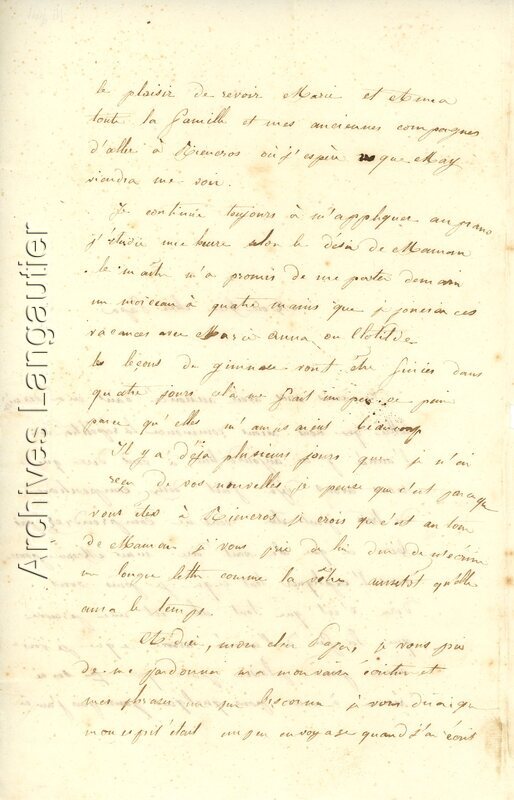 le plaisir de revoir Marie et Anna
toute la famille et mes anciennes compagnes
d'aller à Rieucros où j'espère que May
viendra me voir.
Je continue toujours à m'appliquer au piano
j'étudie une heure selon le désir de Maman
le maître m'a promis de me porter demain
un morceau à quatre mains que je jouerai ces
vacances avec Marie anna ou Clotilde
les leçons de gimnase vont être finies dans
quatre jours cela me fait un peu de peine
parce qu'elles m'amusaient beaucoup
Il y a déjà plusieurs jours que je n'ai
reçu de vos nouvelles je pense que c'est parceque
vous êtes à Rieucros je crois que c'est au tour
de Maman je vous prie de lui dire de m'écrire
une longue lettre comme la vôtre aussitôt qu'elle
aura le temps.
Adieu, mon cher Papa, je vous prie
de me pardonner ma mauvaise écriture et
mes phrases un peu biscornu je vous dirai que
mon esprit était un peu en voyage quand j'ai écrit
Archives Langautier